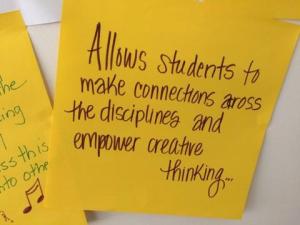 Allows students to
make connections across
the disciplines and
empower creative
thinking...
he
ing
ss this
nto othe